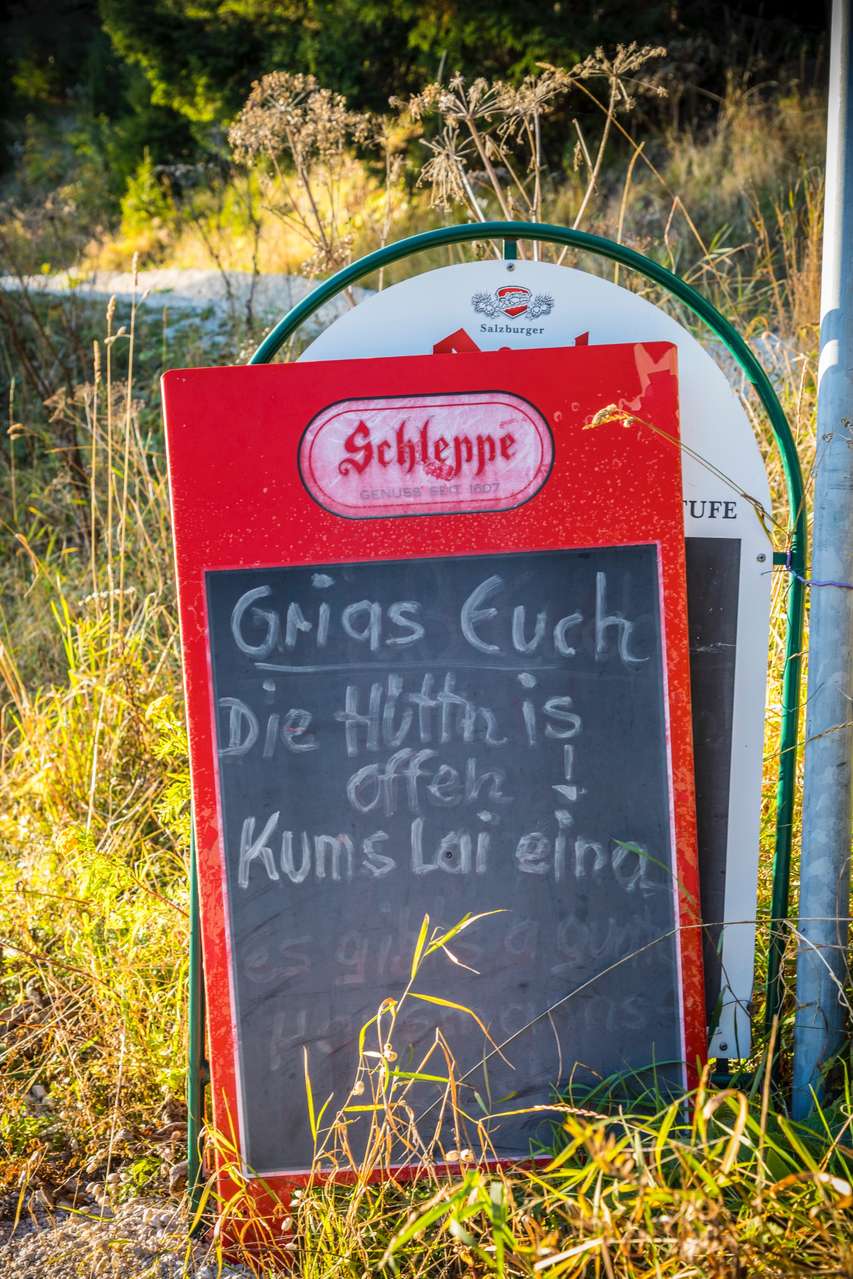 Salzburger
Schleppe
GENUSS SEIT 1607
TUFE
Grias Euch
Die Hüttn is
offen !
Kums Lai eina
es gibt a